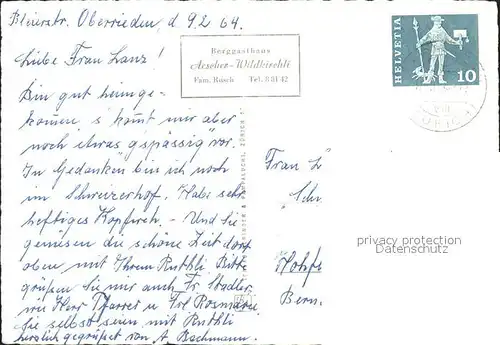 Bleierstr. Oberrieden, d. 9.2.64.
Liebe Frau Lanz!
Bin gut heimge-
kommen s'kommt mir aber
noch etwas "gspässig" vor.
In Gedanken bin ich noch
im Schweizerhof. Habe sehr
heftiges Kopfweh. - Und Sie
geniesen die schöne Zeit dort
oben mit Ihrem Ruthli. Bitte
grüßen Sie mir auch Fr. Stadler
wie Herr Pfarrer u Frl Rosmarie
Sie selbst seien mit Ruthli
herzlich gegrüßet von A. Bachmann.
Berggasthaus
Aescher-Wildkirchli
Fam. Rusch Tel. 8 81 42
HELVETIA
10
Frau L
Schw
Bern.
privacy protection
Datenschutz